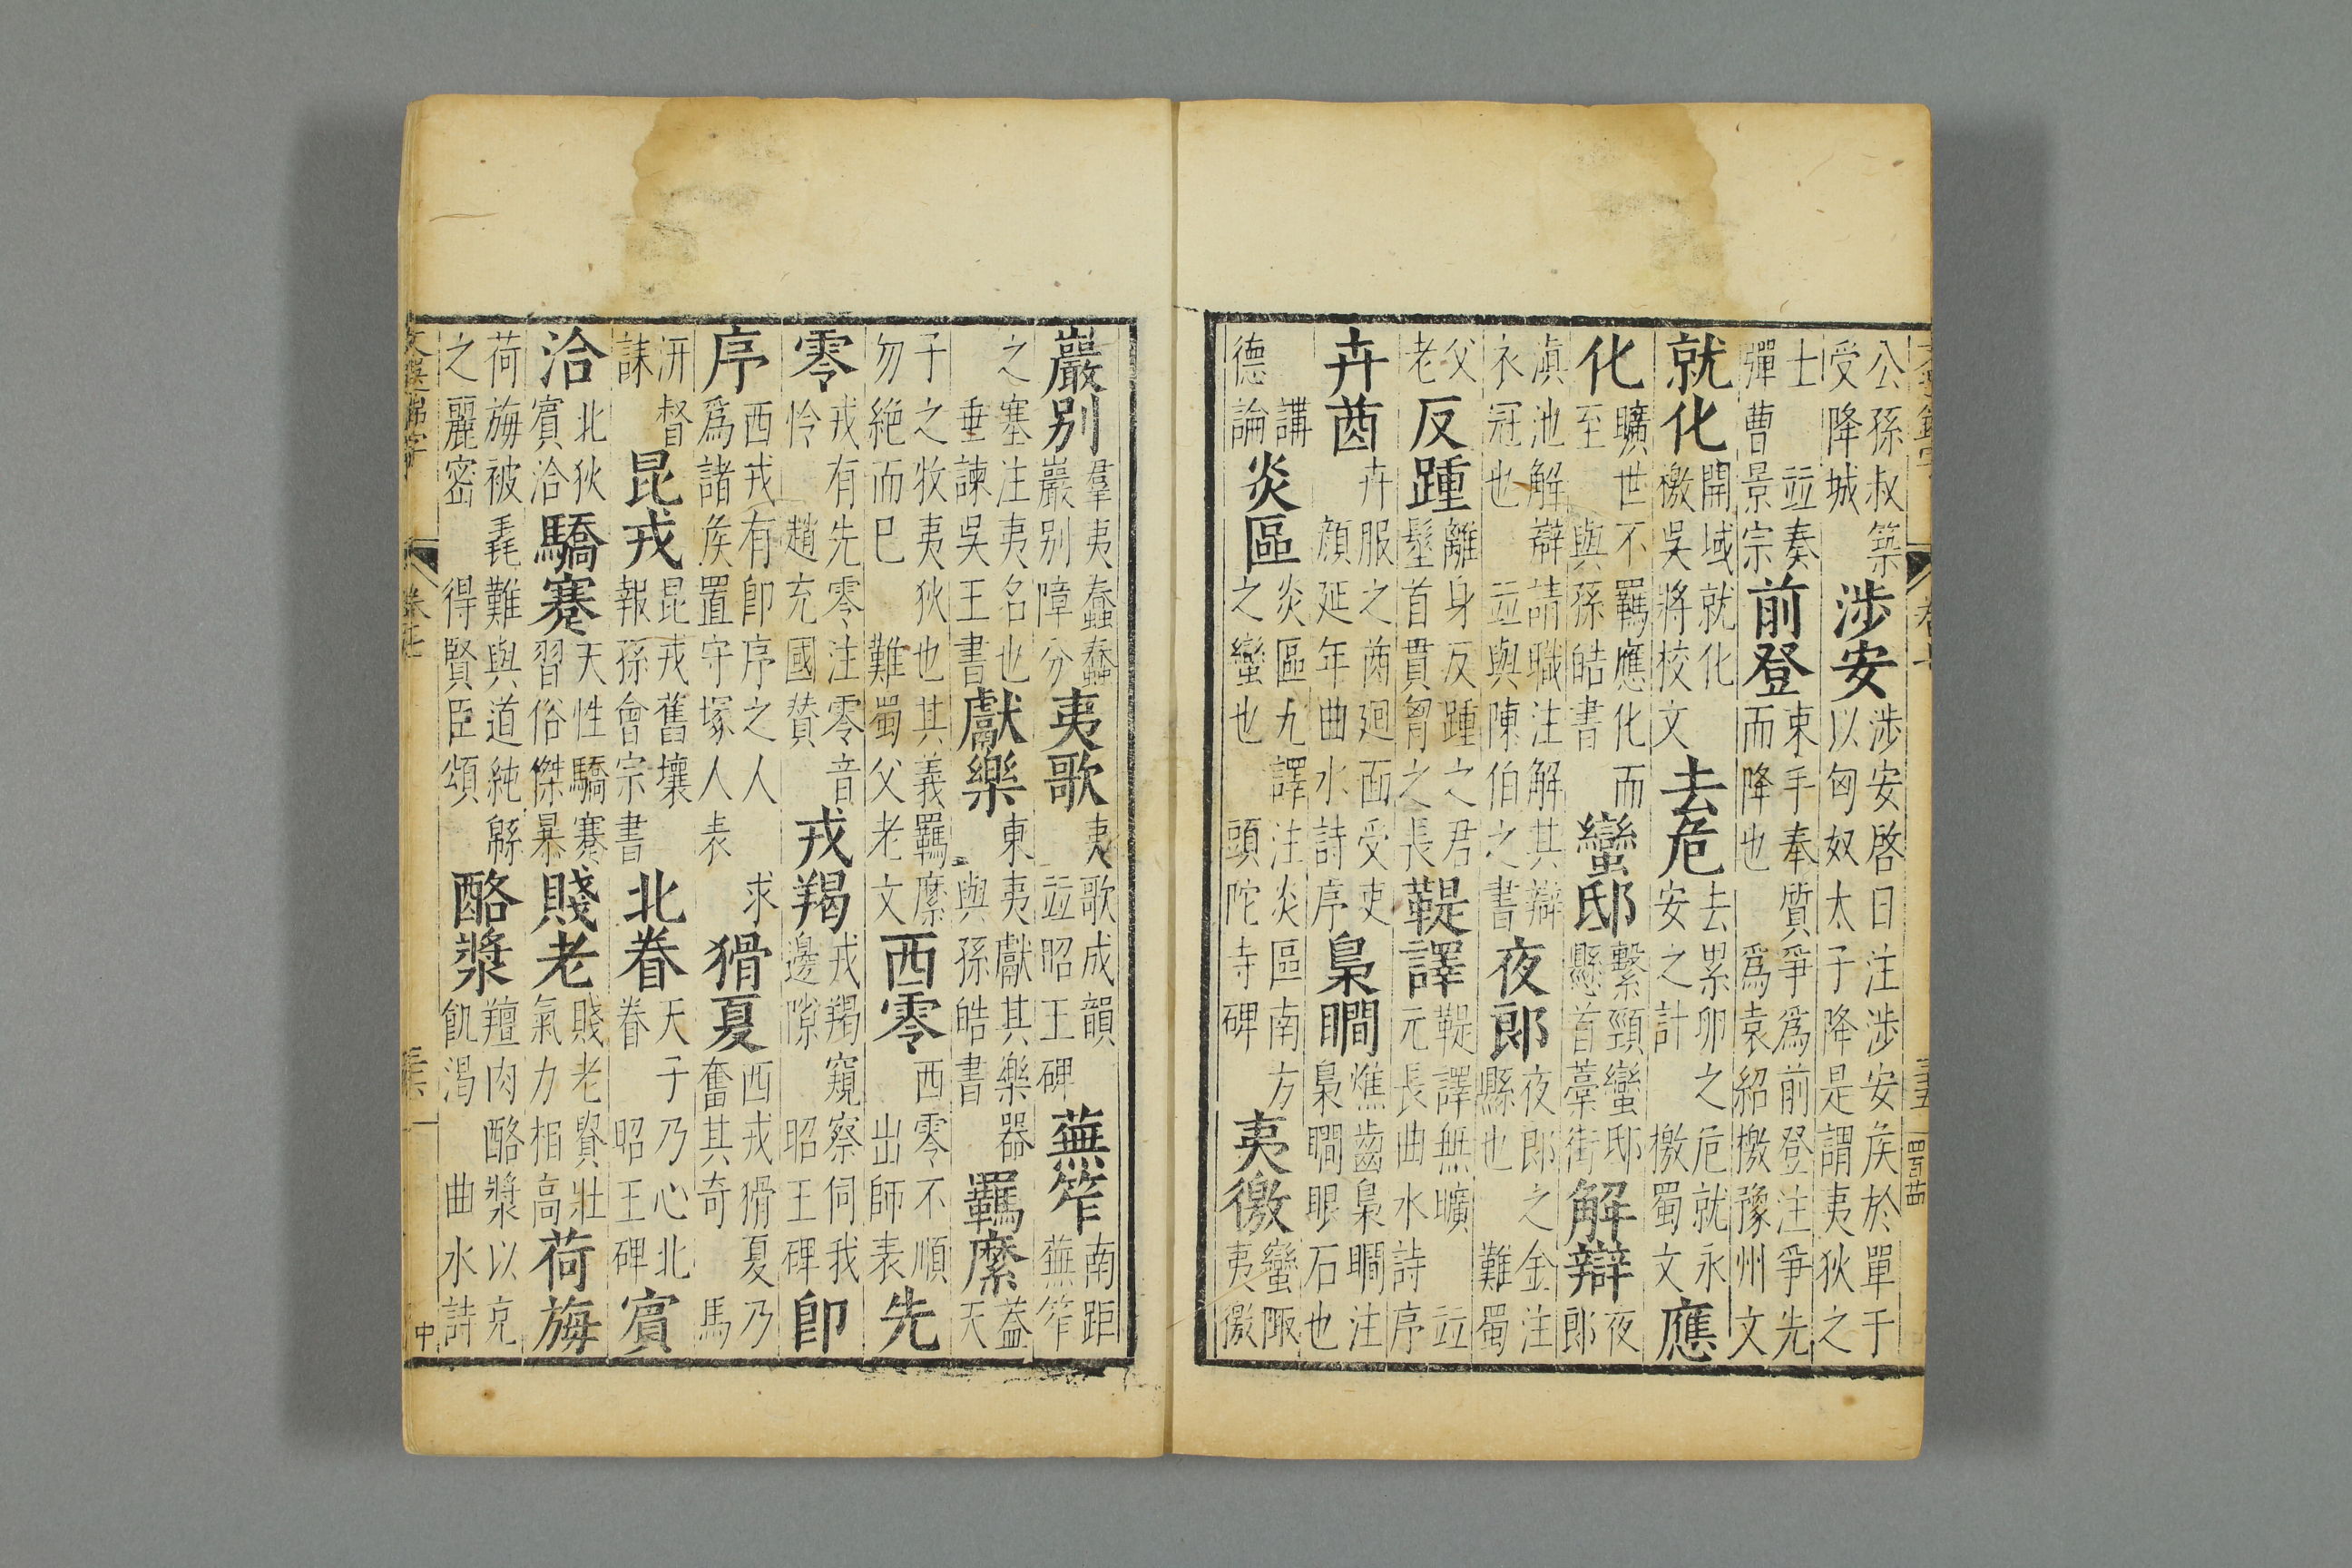 公孫叔築受降城涉安涉安啓日注涉安矦於單于以匈奴太子降是謂夷狄之
士並奏彈曹景宗前登束手奉質爭為前登注爭先而降也爲袁紹檄豫州文
就化開域就化檄吳將校文去危去累卵之危就永安之計檄蜀文應
化曠世不羈應化而至與孫皓書蠻邸繫頸蠻邸懸首藁街解辯夜郎
滇池解辯請職注解其辯衣冠也並與陳伯之書夜郎夜郎之金注縣也難蜀
父老反踵離身反踵之君髽首貫胷之長鞮譯鞮譯無曠元長曲水詩序並
卉茵卉服之茵廻面受吏顔延年曲水詩序梟瞷燋齒梟瞷注梟瞷眼石也
講德論炎區炎區九譯注炎區南方之蠻也頭陀寺碑夷徼蠻陬夷徼
巖别羣夷蠢蠢巖别障分夷歌夷歌成韻並昭王碑蕪笮南距蕪笮
之塞注夷名也垂諫吳王書獻樂東夷獻其樂器與孫皓書羈縻蓋天
子之牧夷狄也其義羈縻勿絶而巳難蜀父老文西零西零不順出師表先
零戎有先零注零音怜趙充國贊戎羯戎羯窺察伺我邊隙昭王碑卽
序西戎有卽序之人爲諸矦置守塚人表求猾夏西戎猾夏乃奮其奇馬
汧督誄昆戎昆戎舊壤報孫會宗書北眷天子乃心北眷昭王碑賓
洽北狄賓洽驕蹇天性驕蹇習俗傑暴賤老賤老賢壯氣力相高荷旃
荷旃被毳難與道純緜之麗密得賢臣頌酪漿羶肉酪漿以充飢渴曲水詩
中